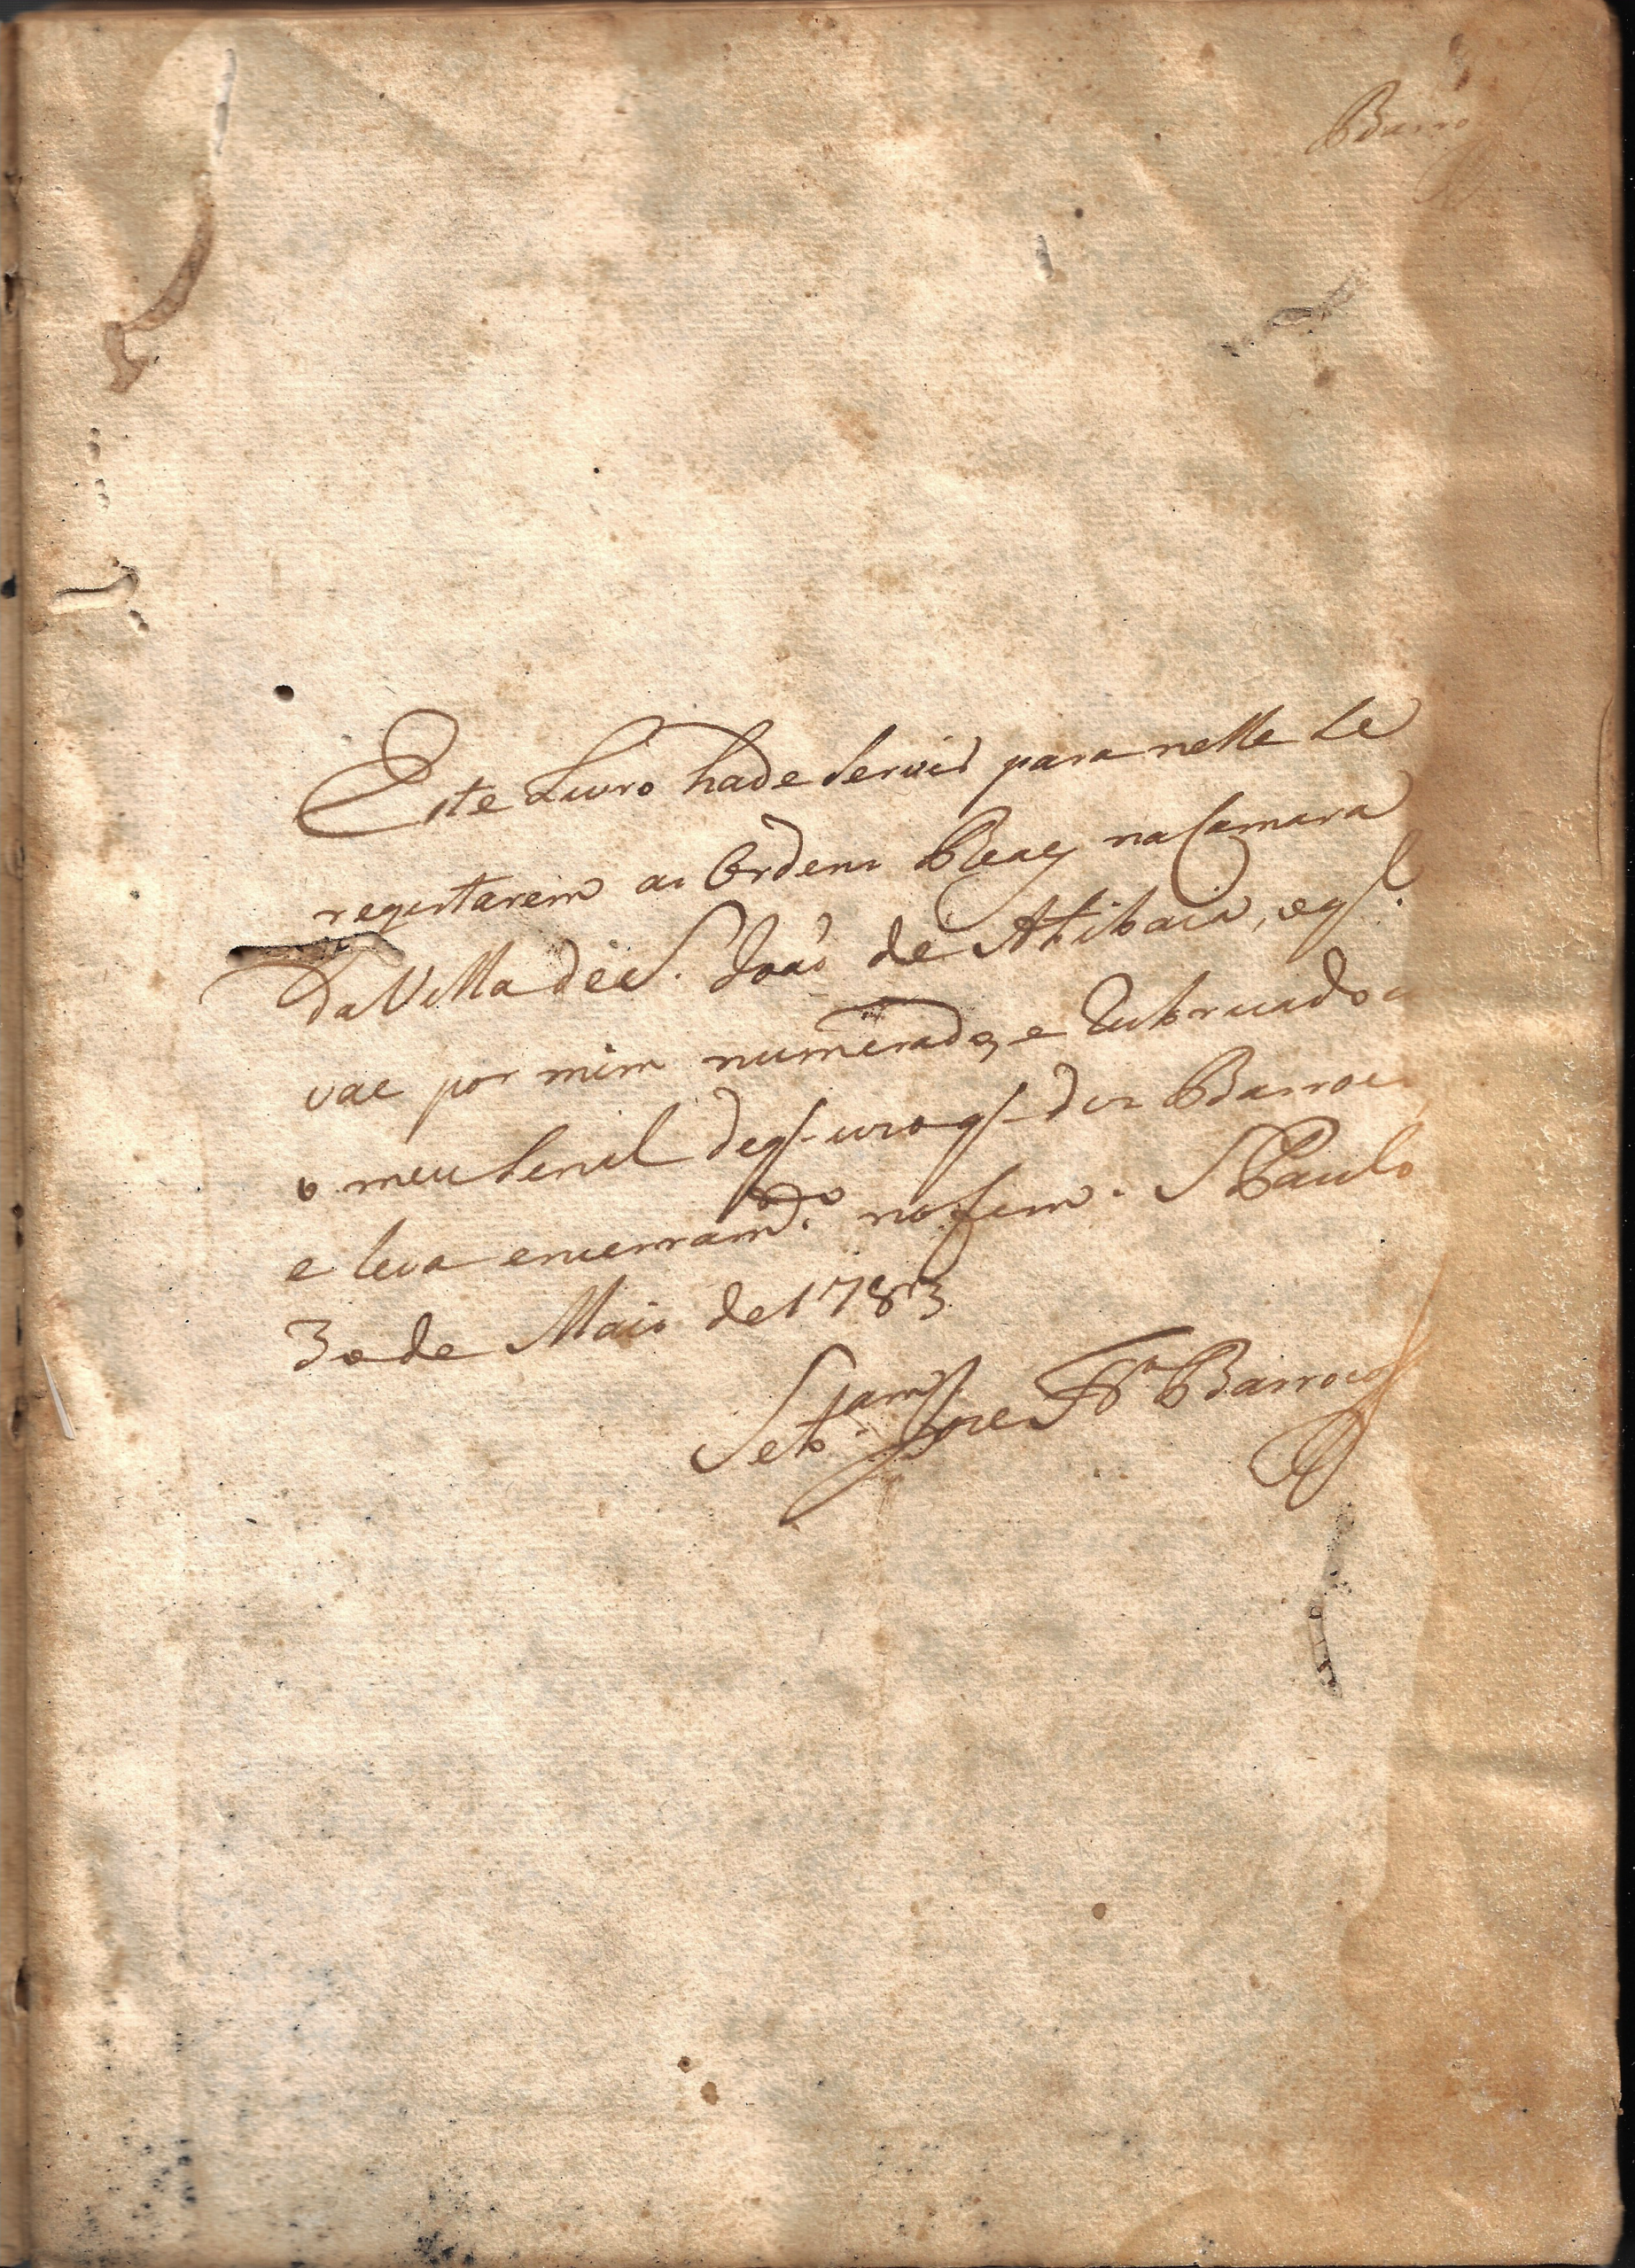 Barro
Este Livro hade Servir para nelle Se
registarem as Ordens Reaes na Camara
da Villa de S. Joaõ de Atibaia, eql.
vae por mim numerado, e Rubricado
o meu Sinal de q. uso q. diz Barroco
e leva encerram.to no fim. S Paulo
30 de Maio de 1783
Seb.am Joze Fr.a Barroco